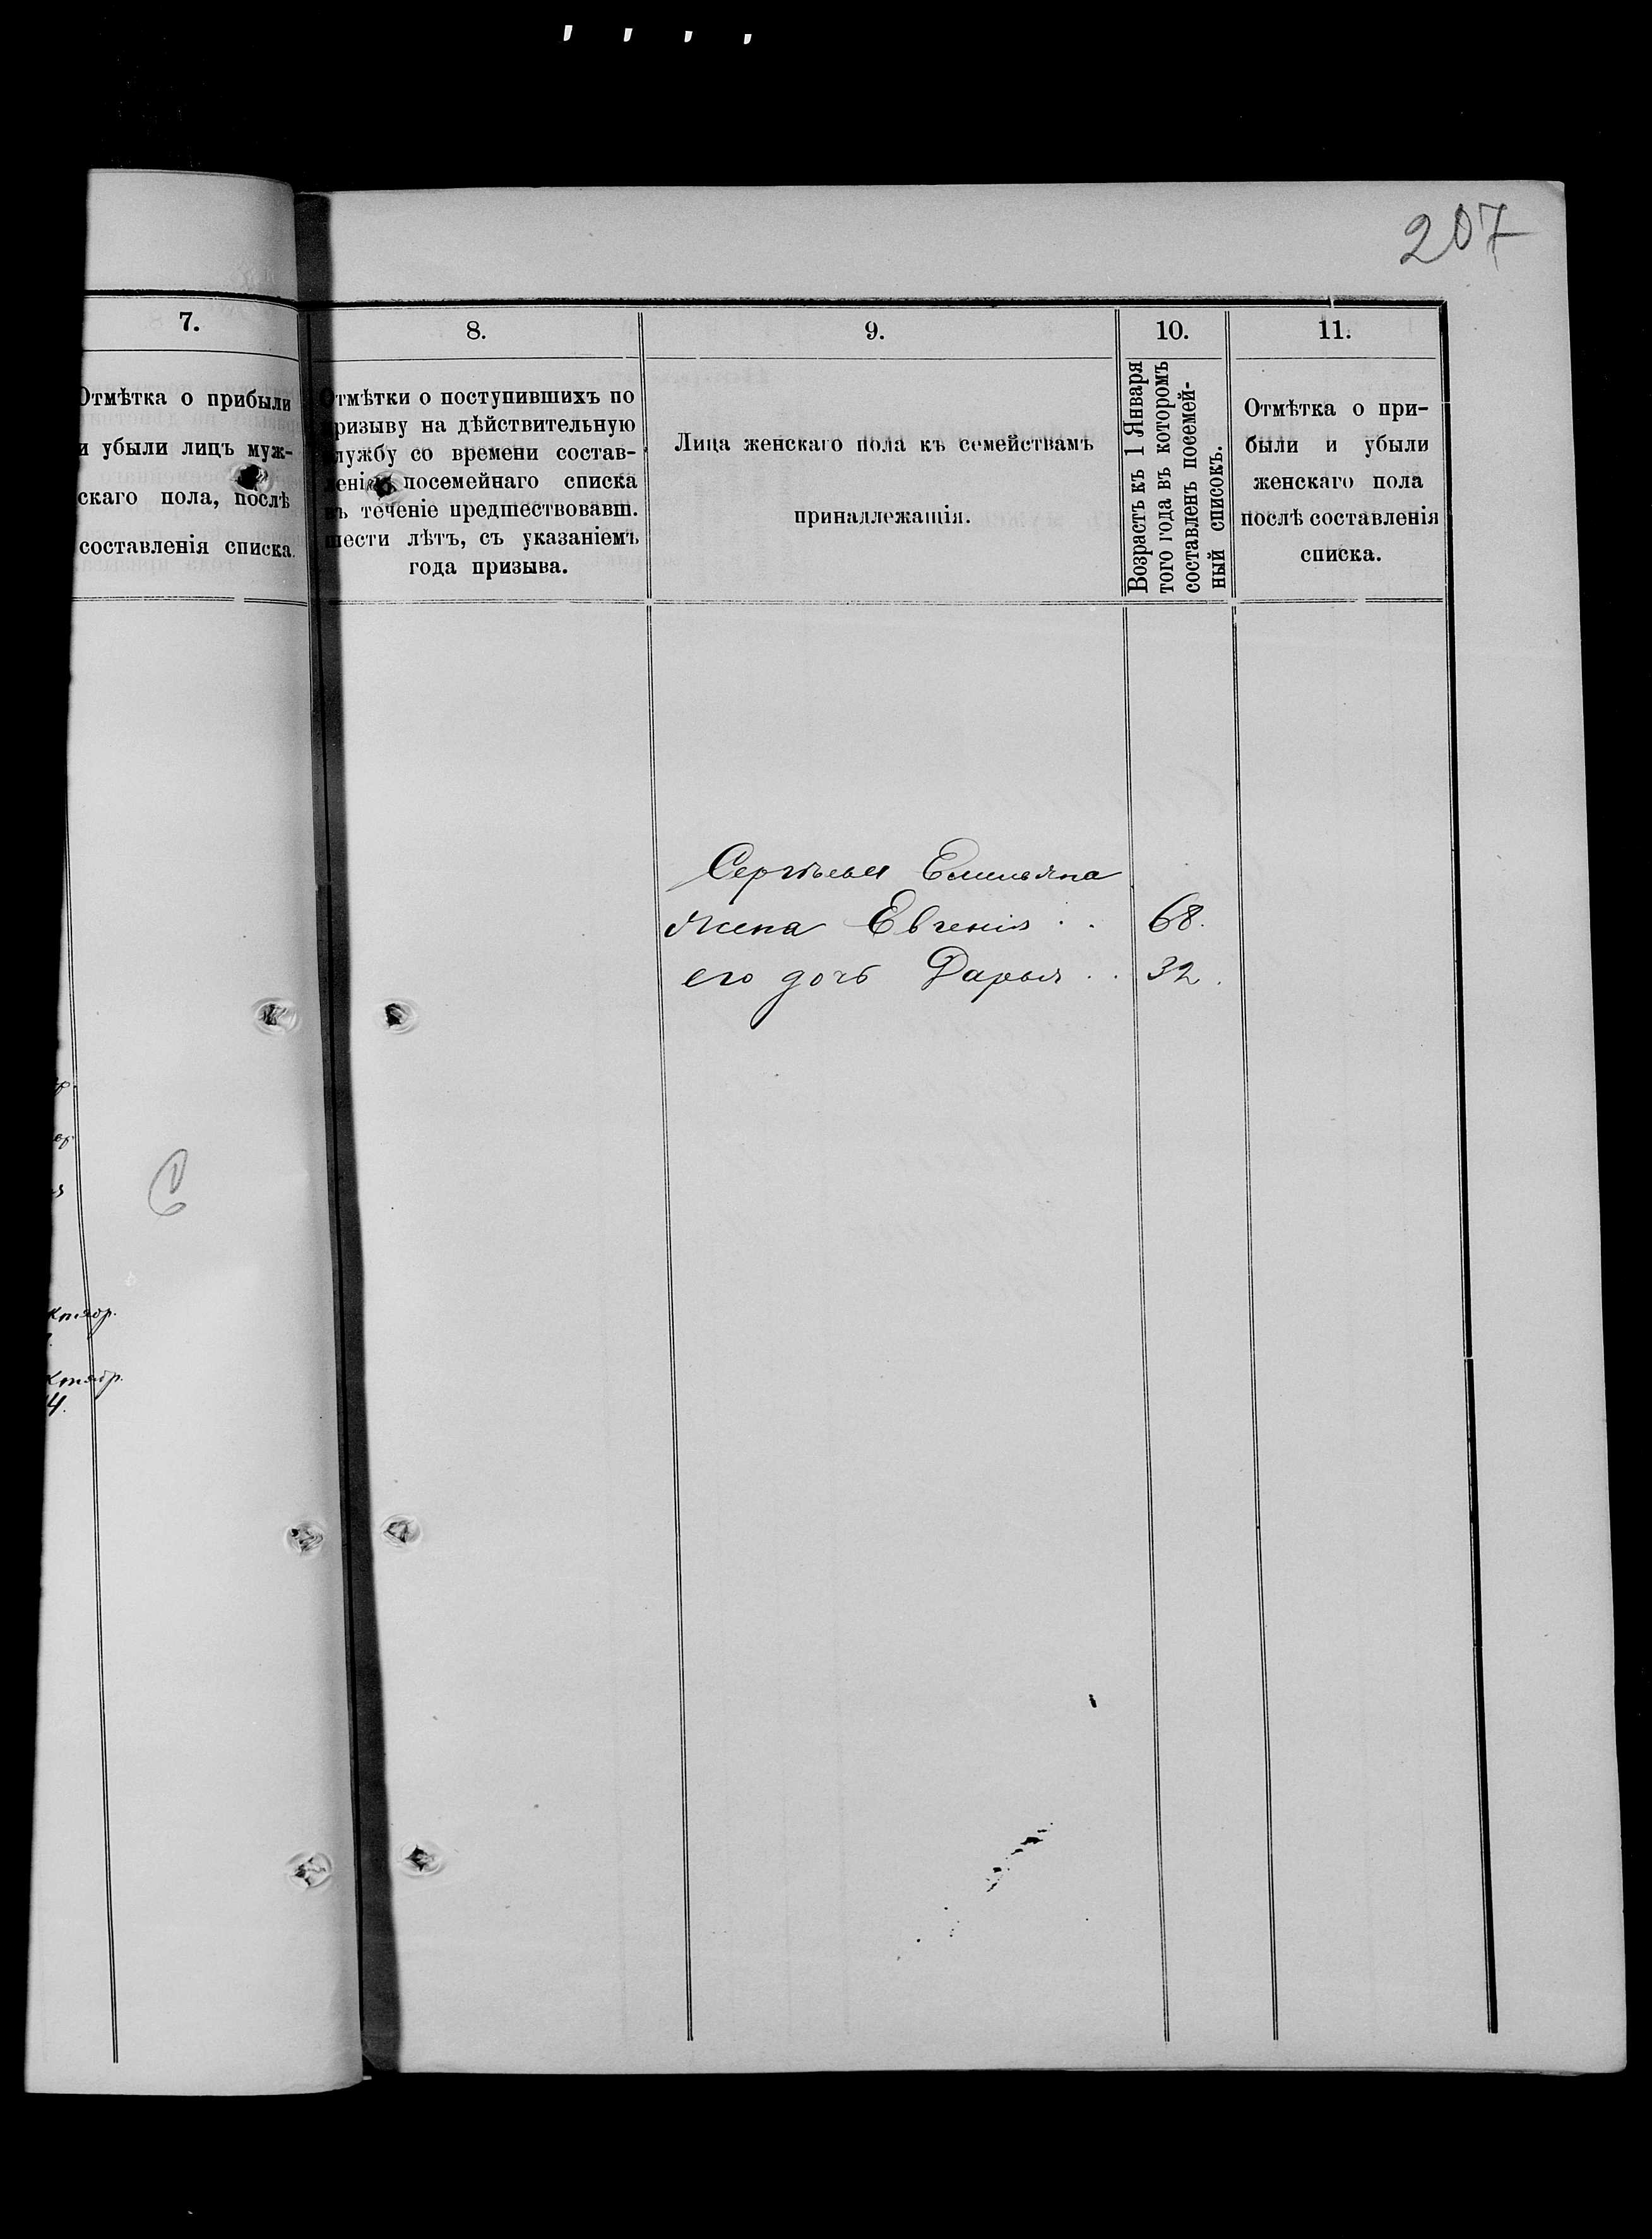 207
7.
Отмѣтка о прибыли
и убыли лицъ муж-
скаго пола, послѣ
составленія списка.
8.
Отмѣтки о поступившихъ по
призыву на дѣйствительную
службу со времени состав-
ленія посемейнаго списка
въ теченіе предшествовавш.
шести лѣтъ, съ указаніемъ
года призыва.
9.
Лица женскаго пола къ семействамъ
принадлежащія.
10.
Возрастъ къ 1 Января
того года въ которомъ
составленъ посемей-
ный списокъ.
11.
Отмѣтка о при-
были и убыли
женскаго пола
послѣ составленія
списка.
Емельяна
жена Евгенія . . 68.
его дочь Дарья . . 32.
С
ктябр.
ктябр.
4.